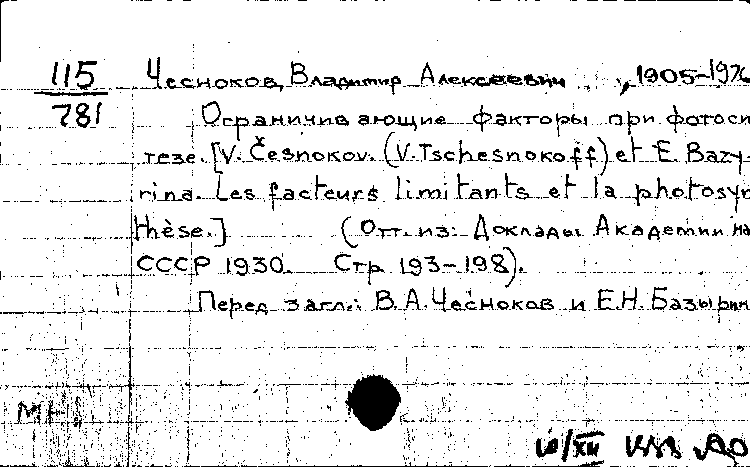 115 Чесноков, Владимир Алексеевич, 1905-1976
781 Ограничивающие факторы при фотоси
тезе. [V. Česnokov. (V. Tschesnokoff) et E. Bazy-
rina. Les facteurs limitants et la photosyn
thèse.] (Отт. из: Доклады Академии на
СССР 1930. Стр. 193-198).
Перед загл.: В.А. Чесноков и Е.Н. Базырин
МН.
10/XII